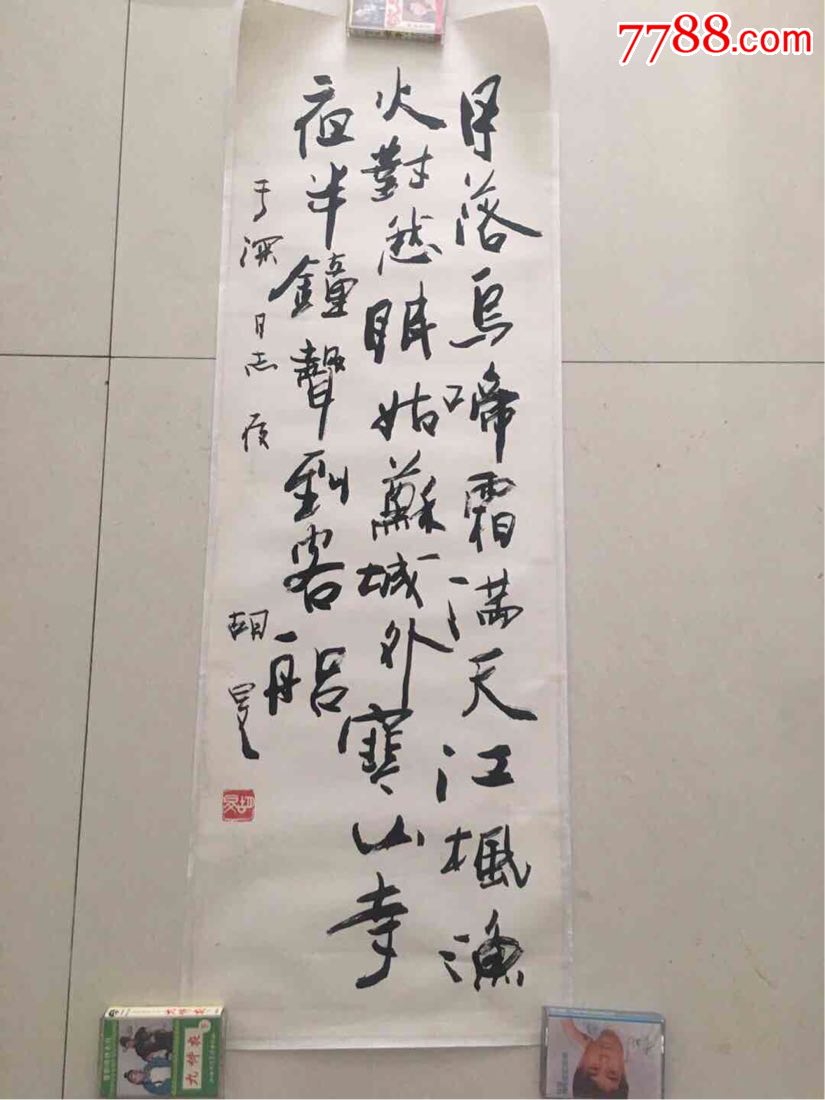 7788.com
月落烏啼霜满天江楓漁
火對愁眠姑蘇城外寒山寺
夜半鐘聲到客船
胡
九件衣